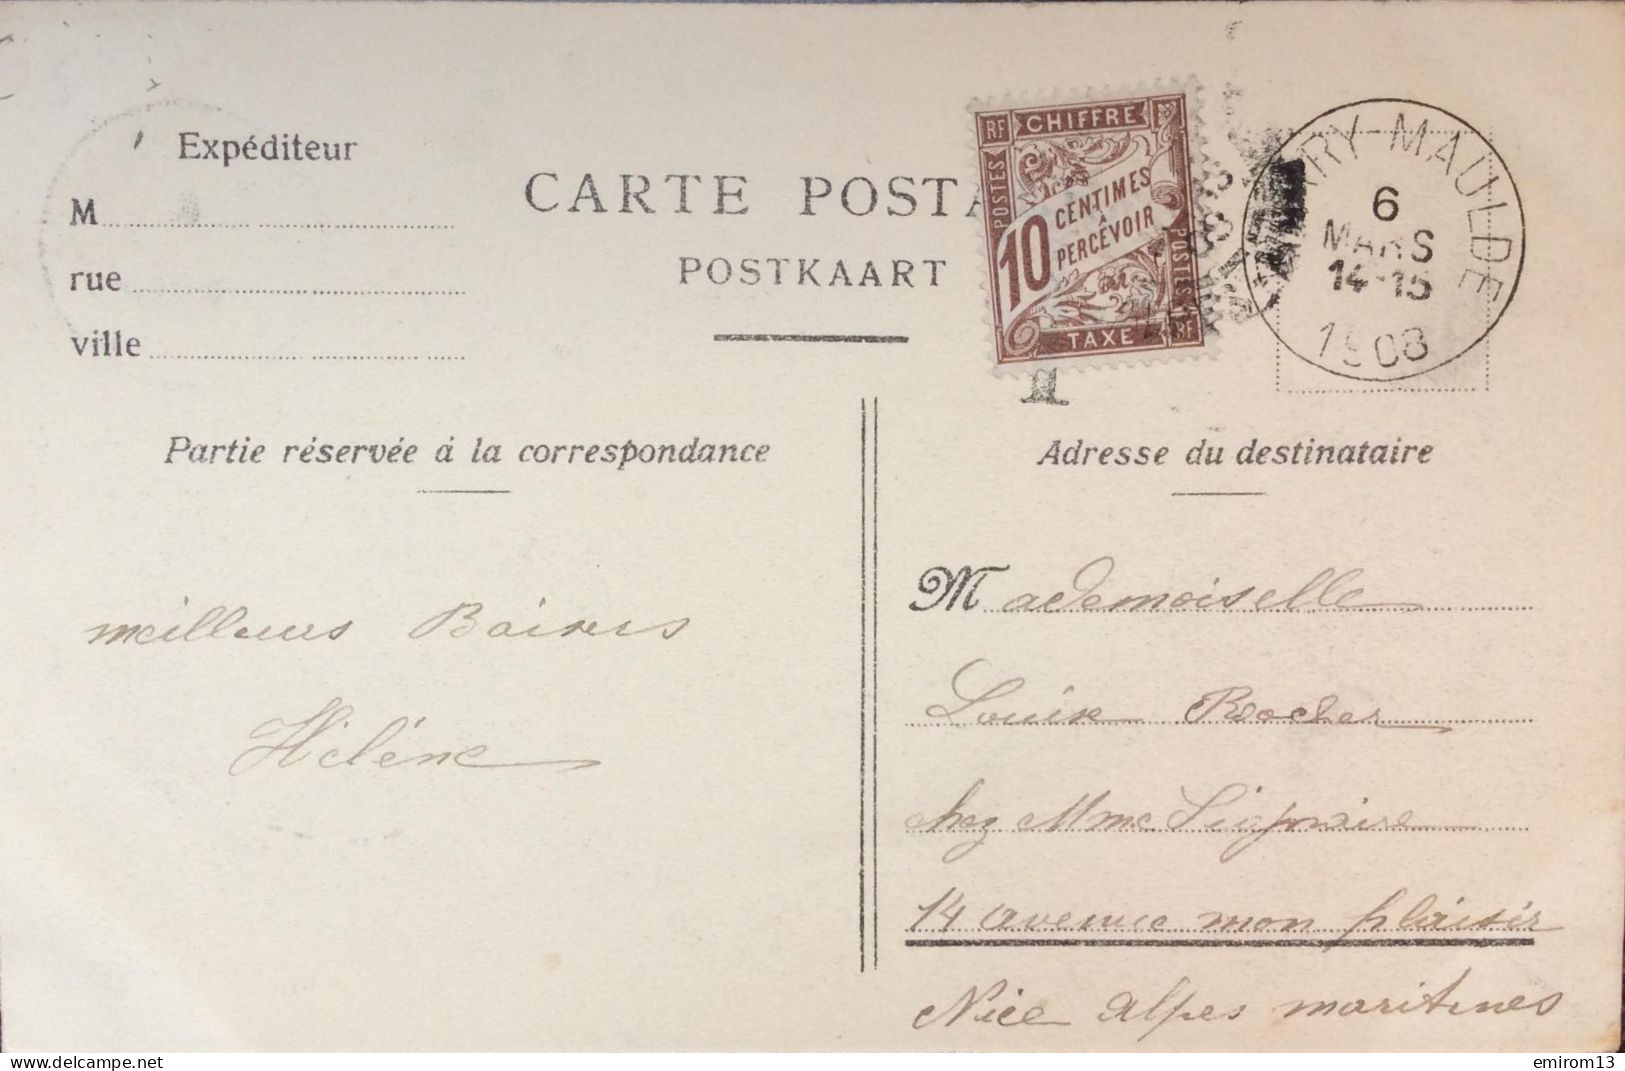 Expéditeur
M
rue
ville
CARTE POSTA
POSTKAART
RF CHIFFRE
POSTES
10 CENTIMES
À
PERCEVOIR
POSTES
TAXE RF
T
RY-MAULDE
6
MARS
14-15
1908
Partie réservée á la correspondance
Adresse du destinataire
meilleurs Baisers
Hélène
Mademoiselle
Louise Rocher
chez Mme
14 avenue mon plaisir
Nice Alpes maritimes
delcampe.net
emirom13